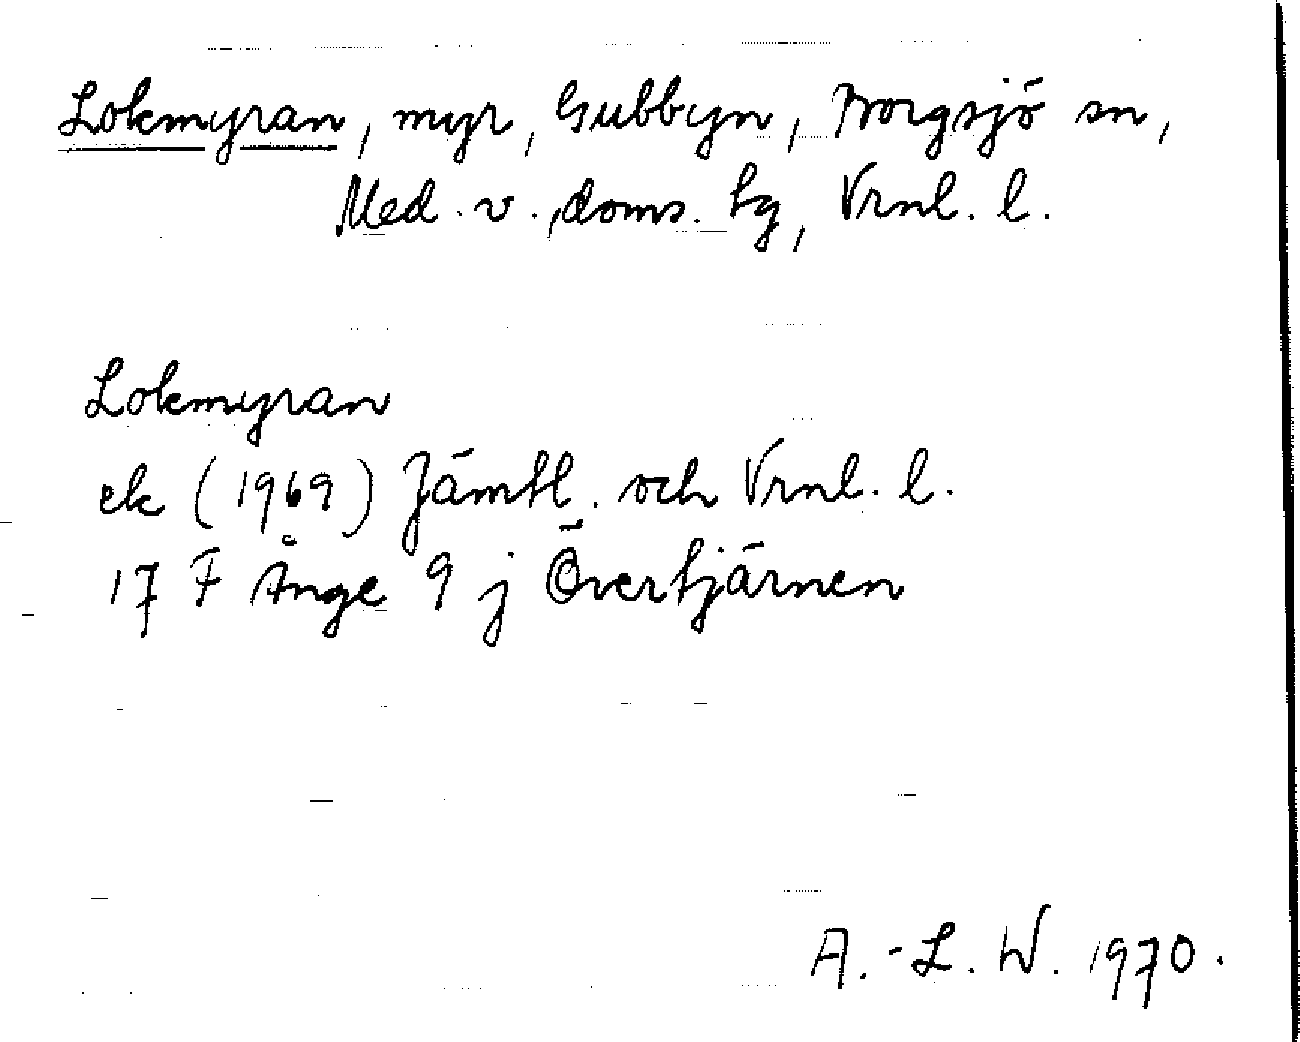 Lokmyran, myr, Gubbyn, Borgsjö sn,
Med. v., doms. tg, Vrnl. l.
Lokmyran
ek (1969) Jämtl. och Vrnl. l.
17 F Ånge 9 j Övertjärnen
A.-L. W. 1970.